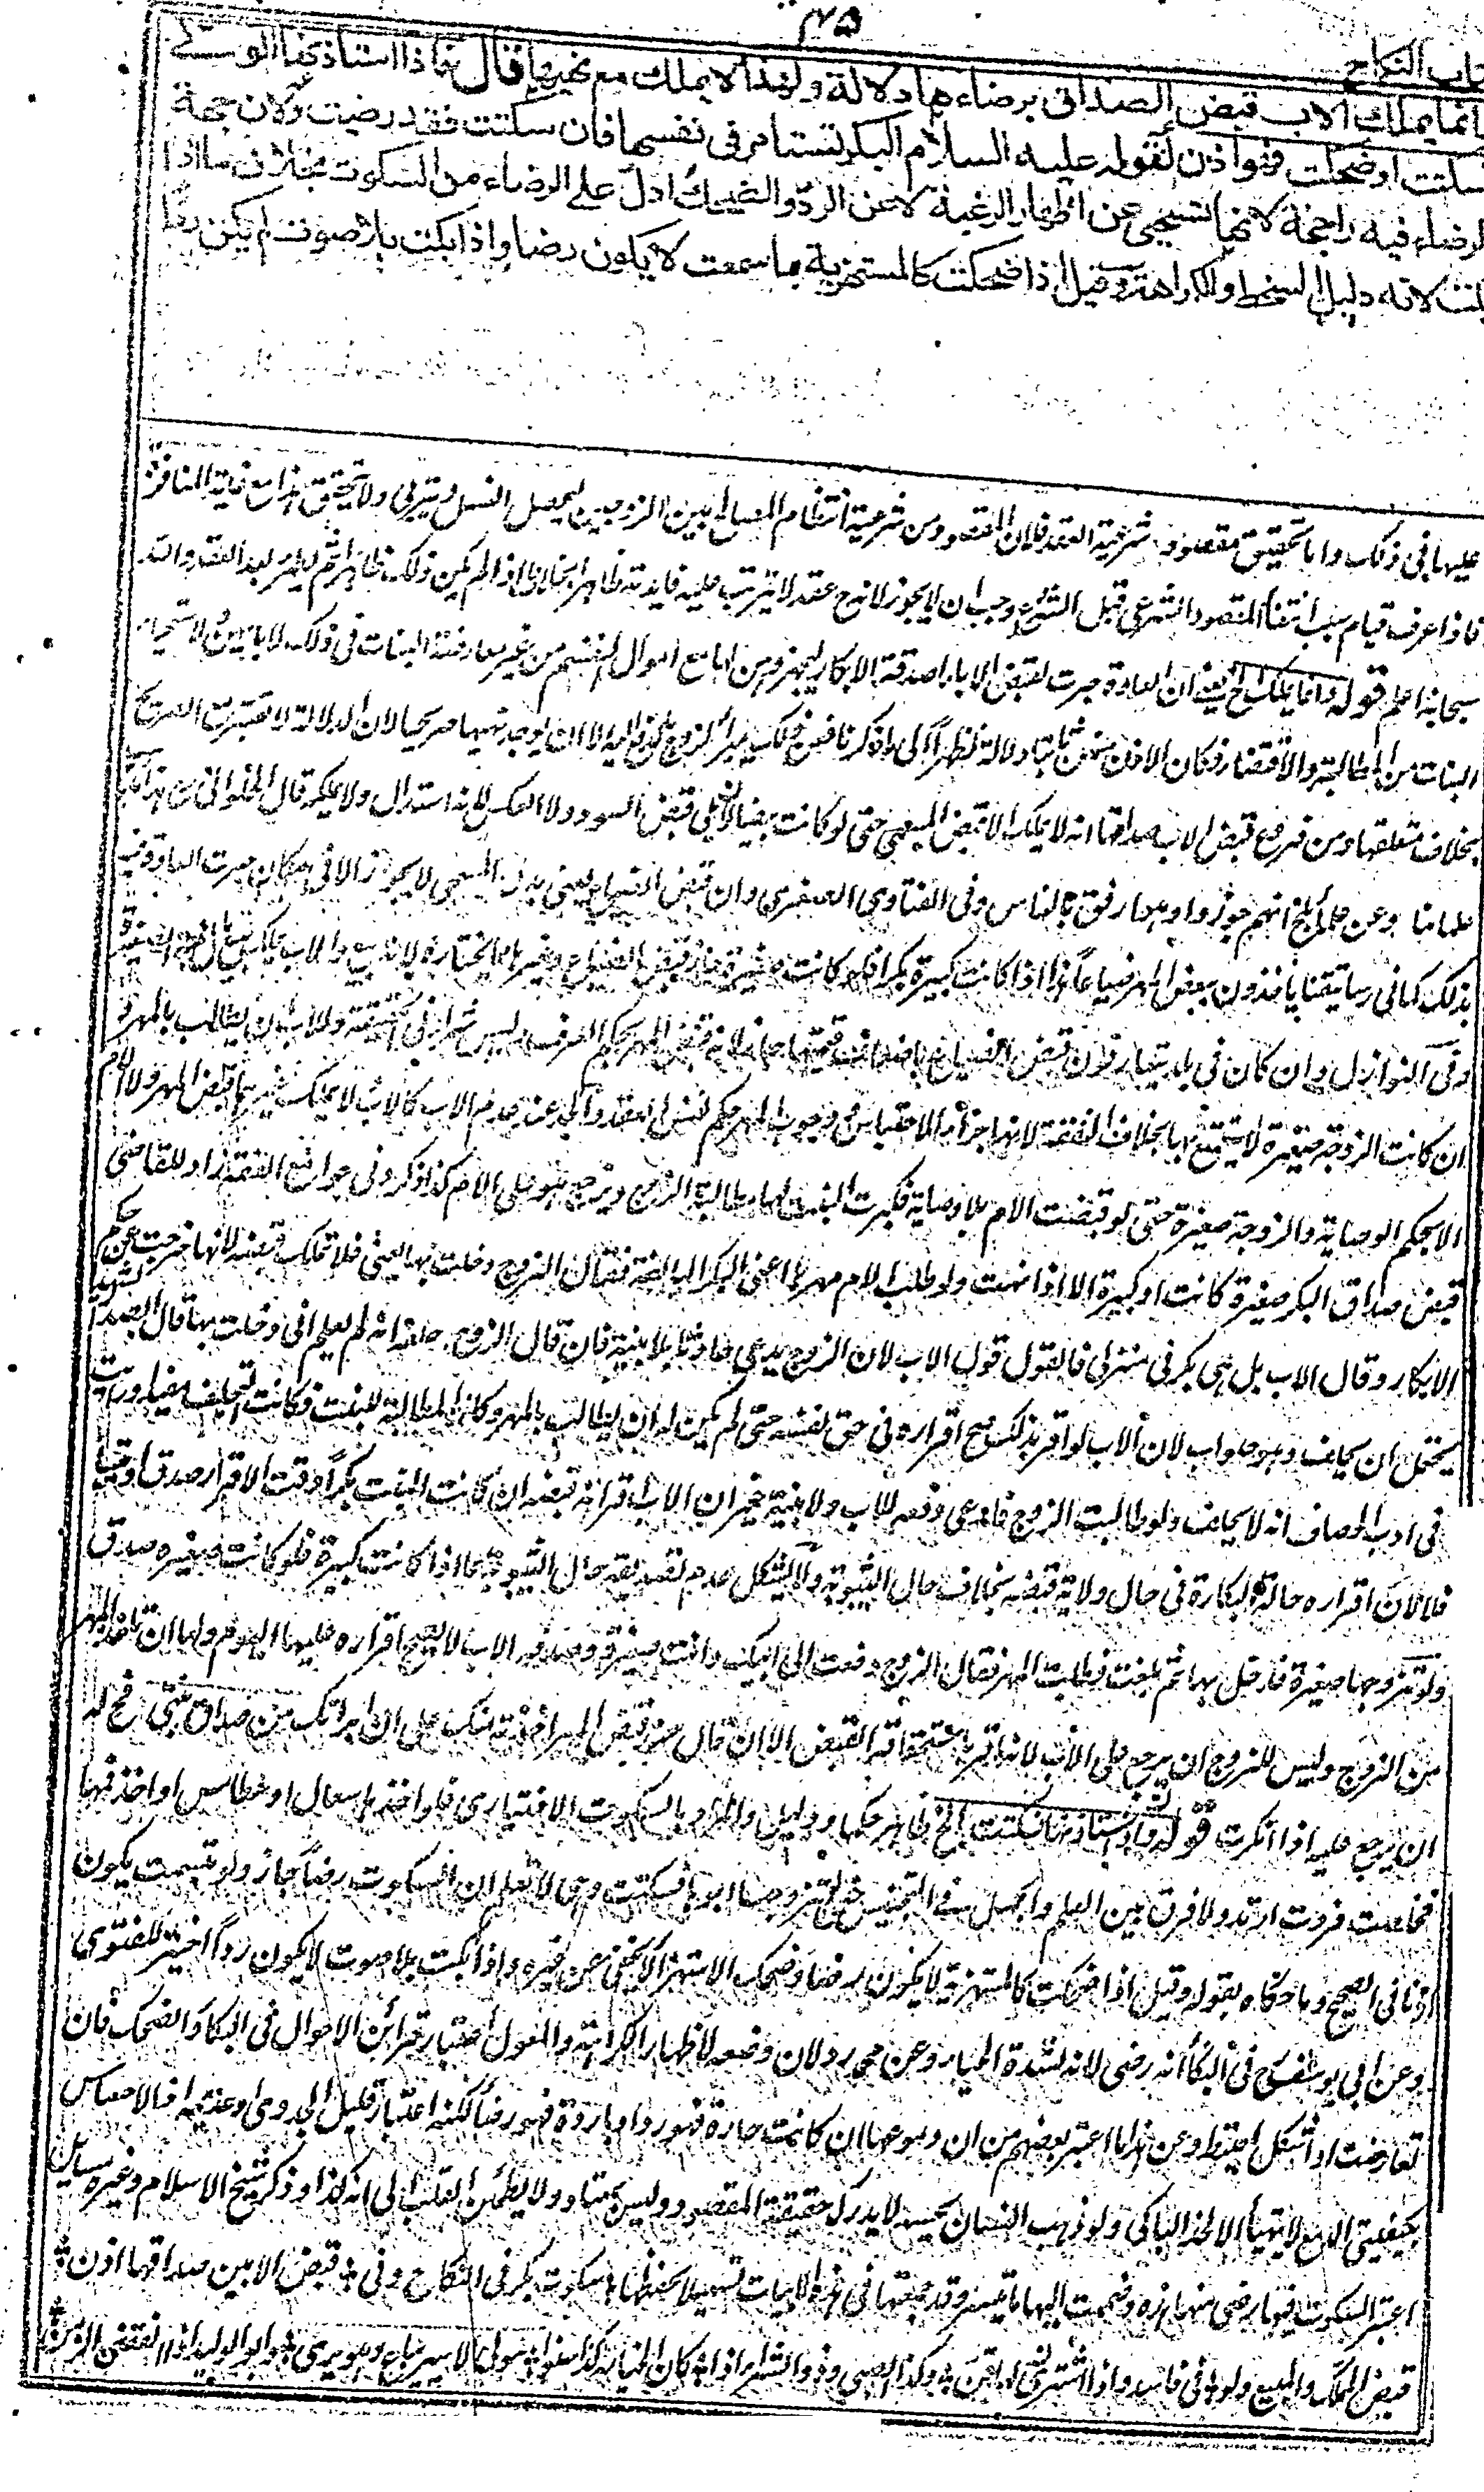 ۴۵
كتاب النكاح
وانما يملك الاب قبض الصداق برضاءها دلالة ولهذا لا يملك مع نهيها قال فاذا استاذنها الولى
فسكتت او ضحكت فهو اذن لقوله عليه السلام البكر تستامر فى نفسها فان سكتت فقد رضيت ولان جهة
الرضاء فيه راجحة لانها تستحيى عن اظهار الرغبة لا عن الرد والضحك ادل على الرضاء من السكوت بخلاف ما اذا
بكت لانه دليل السخط والكراهة وقيل اذا ضحكت كالمستهزية بما سمعت لا يكون رضا واذا بكت بلا صوت لم يكن ردا
عليها فى ذلك واما تحقيق مقصود شرعية العقد فلان المقصود من شرعية انتظام المصالح بين الزوجين ليحصل النسل ويتربى ولا يتحقق هذا مع غاية المنافرة
فاذا عرف قيام سبب انتفاء المقصود الشرعى قبل الشئ وجب ان لا يجوز لانه عقد لا يترتب عليه فايدته ظاهرا بخلاف ما اذا لم يكن ذلك ظاهرا ثم يظهر بعد العقد والله
سبحانه اعلم قوله وانما يملك الخ يعنى ان العادة جرت لقبض الاباء اصدقة الابكار ليجهزوهن بها مع اموال انفسهم من غير معارضة البنات فى ذلك لابائهن لاستحياء
البنات من المطالبة والاقتضاء فكان الاذن منهن ثابتا دلالة نظرا الى ما ذكرنا فعن ذلك يبرأ الزوج بالدفع اليه الا ان يوجد نهيها صريحا لان الدلالة لا تعتبر مع الصريح
بخلاف متعلقها ومن فروع قبض الاب صداقها انه لا يملك الا قبض المسمى حتى لو كانت بيضا لا يلى قبض السود ولا العكس لانه استبدال ولا يملكه قال الحلوانى هذا مذهب
علمائنا وعن علماء بلخ انهم جوزوا وهو ارفق بالناس وفى الفتاوى الصغرى وان قبض الضياع يعنى بدل المسمى لا يجوز الا فى مكان جرت العادة فيه
بذلك كما فى رساتيقنا ياخذون ببعض المهر ضياعا هذا اذا كانت كبيرة بكرا فلو كانت صغيرة جاز قبض الضياع وغيره على المختار لانه بيع والاب يملك بيع مال الصغيرة
وفى النوازل وان كان فى بلد يتعارفون قبض الضياع باضعاف قيمتها جاز لانه قبض المهر بحكم العرف وليس شراء فى الحقيقة وللاب ان يطالب بالمهر و
ان كانت الزوجة صغيرة لا يستمتع بها بخلاف النفقة لانها جزاء الاحتباس ووجوب المهر بحكم نفس العقد والجد عند عدم الاب كالاب لا يملك غيرهما قبض المهر ولا الام
الا بحكم الوصاية والزوجة صغيرة حتى لو قبضت الام بلا وصاية فكبرت البنت لها مطالبة الزوج ويرجع هو على الام كذا ذكر وفى جوامع الفقه زاد للقاضى
قبض صداق البكر صغيرة كانت او كبيرة الا اذا نهت ولو طلب الاب مهرها اعنى البكر البالغة فقال الزوج دخلت بها يعنى فلا تملك قبضه لانها خرجت عن حكم
الابكار وقال الاب بل هى بكر فى منزلى فالقول قول الاب لان الزوج يدعى حادثا بلا بينة فان قال الزوج حلفه انه لم يعلم انى دخلت بها قال الصدر الشهيد
يحتمل ان يحلف وهو صواب لان الاب لو اقر بذلك صح اقراره فى حق نفسه حتى لم يكن له ان يطالب بالمهر وكان المطالبة للبنت فكانت التحليف مفيدا ورايت
فى ادب الخصاف انه لا يحلف ولو طالبت الزوج فادعى دفعه للاب ولا بينة غير ان الاب اقر انه قبضه ان كانت البنت بكرا وقت الاقرار صدق او ثيبا
فلا لان اقراره حالة البكارة فى حال ولاية قبضه بخلاف حال الثيوبة ولا يشكل عدم تصديقه حال الثيوبة فيما اذا كانت كبيرة فلو كانت صغيرة صدق
ولو تزوجها صغيرة فدخل بها ثم بلغت فطلبت المهر فقال الزوج دفعت الى ابيك وانت صغيرة وصدقه الاب لا يصح اقراره عليها اليوم ولها ان تاخذ المهر
من الزوج وليس للزوج ان يرجع على الاب لانه اقر باستحقاقه القبض الا ان قال عند قبض المهر اخذته منك على ان ابرأتك من صداق بنتى فح له
ان يرجع عليه اذا انكرت قوله واذا استاذنها فسكتت الخ ظاهر حكما ودليلا والمراد بالسكوت الاختيارى فلو اخذها سعال او عطاس او اخذ فمها
فخلصت فردت ارتد ولا فرق بين العلم والجهل فى التجنيس حتى لو تزوجها ابوها فسكتت وهى لا تعلم ان السكوت رضا جاز ولو تبسمت يكون
اذنا فى الصحيح وما حكاه بقوله وقيل اذا ضحكت كالمستهزية لا يكون رضا وضحك الاستهزاء لا يخفى عن غيره واذا بكت بلا صوت لا يكون ردا اختير للفتوى
وعن ابى يوسف رح فى البكاء انه رضى لانه لشدة الحياء وعن محمد رد لان وضعه لاظهار الكراهة والمعول اعتبار قرائن الاحوال فى البكاء والضحك فان
تعارضت او اشكل احتيط وعن هذا ما اعتبر بعضهم من ان دموعها ان كانت حارة فهو رد او باردة فهو رضا لكنه اعتبار قليل الجدوى او عديمه اذ الاحساس
بكيفيتى الدمع لا يتهيأ الا لخد الباكى ولو ذهب انسان يحسه لا يدرك حقيقة المقصود وليس بمعتاد ولا يطمئن القلب الى انه كذا وذكر شيخ الاسلام وغيره مسايل
اعتبر السكوت فيها رضى منها هذه وضممت اليها ما تيسر وقد جمعتها فى هذه الابيات تسهيلا لحفظها سكوت بكر فى النكاح وفى ۞ قبض الابين صداقها اذن ۞
قبض المملك والمبيع ولو ۞ فى فاسد واذا اشترى قن ۞ وكذا الصبى وذو الشراء اذا ۞ كان الخيار له كذا سنوا ۞ مولى الاسير يباع وهو يرى ۞ وابو الوليد اذا انقضى الزمن